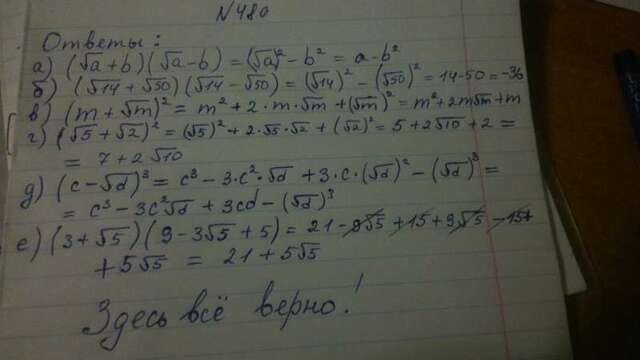 N480
Ответы:
а) (√a + b)(√a - b) = (√a)² - b² = a - b²
б) (√14 + √50)(√14 - √50) = (√14)² - (√50)² = 14 - 50 = -36
в) (m + √m)² = m² + 2·m·√m + (√m)² = m² + 2m√m + m
г) (√5 + √2)² = (√5)² + 2·√5·√2 + (√2)² = 5 + 2√10 + 2 =
= 7 + 2√10
д) (c - √d)³ = c³ - 3·c²·√d + 3·c·(√d)² - (√d)³ =
= c³ - 3c²√d + 3cd - (√d)³
е) (3 + √5)(9 - 3√5 + 5) = 21 - 9√5 + 15 + 9√5 - 15 +
+ 5√5 = 21 + 5√5
Здесь всё верно!